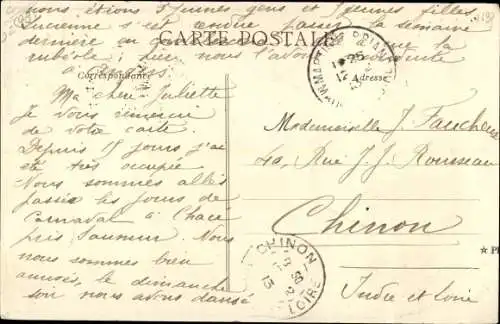 nous étions 5 jeunes gens et jeunes filles
Lucienne s'est encore passer la semaine
dernière en
CARTE POSTALE
rubéole; hier nous l'avons
Correspondance
Adresse
Ma chère Juliette
Je vous remercie
de votre carte.
Depuis 15 jours j'ai
été très occupée
Nous sommes allés
passer les jours de
Carnaval à Chacé
près Saumur. Nous
nous sommes bien
amusés, le dimanche
soir nous avons dansé
Mademoiselle J. Faucheux
40, Rue J. J. Rousseau
Chinon
Indre et Loire
CHINON
LOIRE